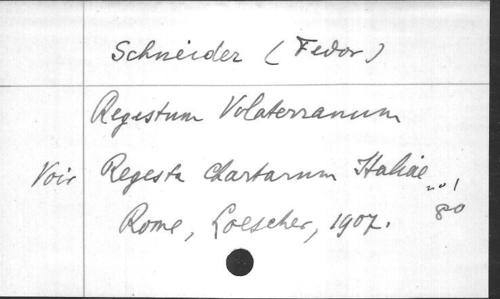 Schneider (Fedor)
Regestum Volaterranum
Voir Regesta Chartarum Italiae n° 1
Rome, Loescher, 1907. 8°